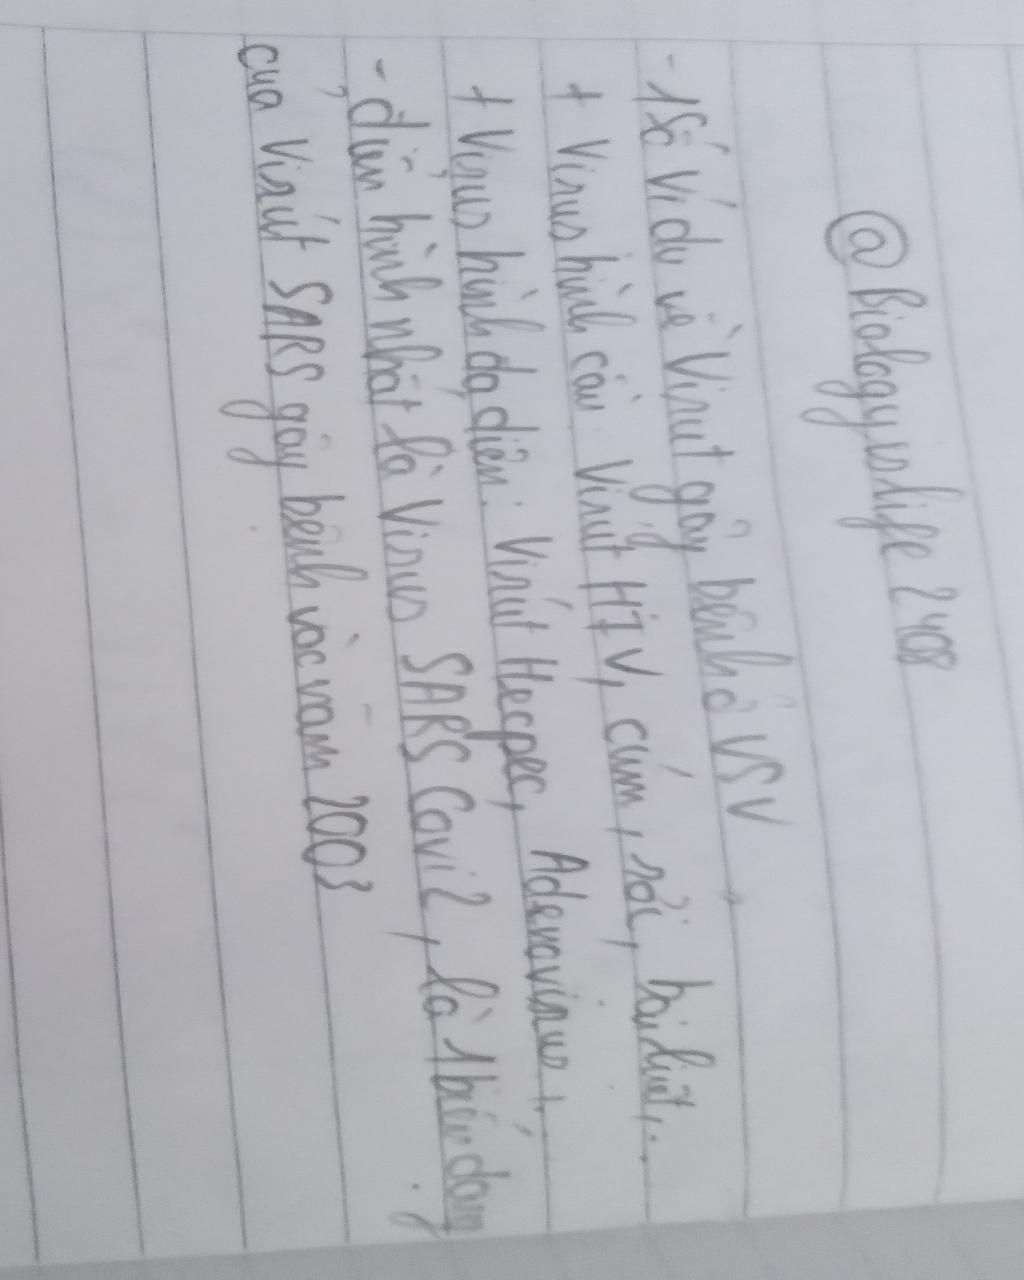 @Biologyislife2408
- 1 số ví dụ về Virut gây bệnh ở VSV
+ Virus hình cầu: Virút HIV, cúm, sởi, bại liệt,...
+ Virus hình đa diện: Virút Hecpec, Adenovirus,..
- điển hình nhất là Virus SARS Covi2, là 1 biến dạng
của Virút SARS gây bệnh vào năm 2003